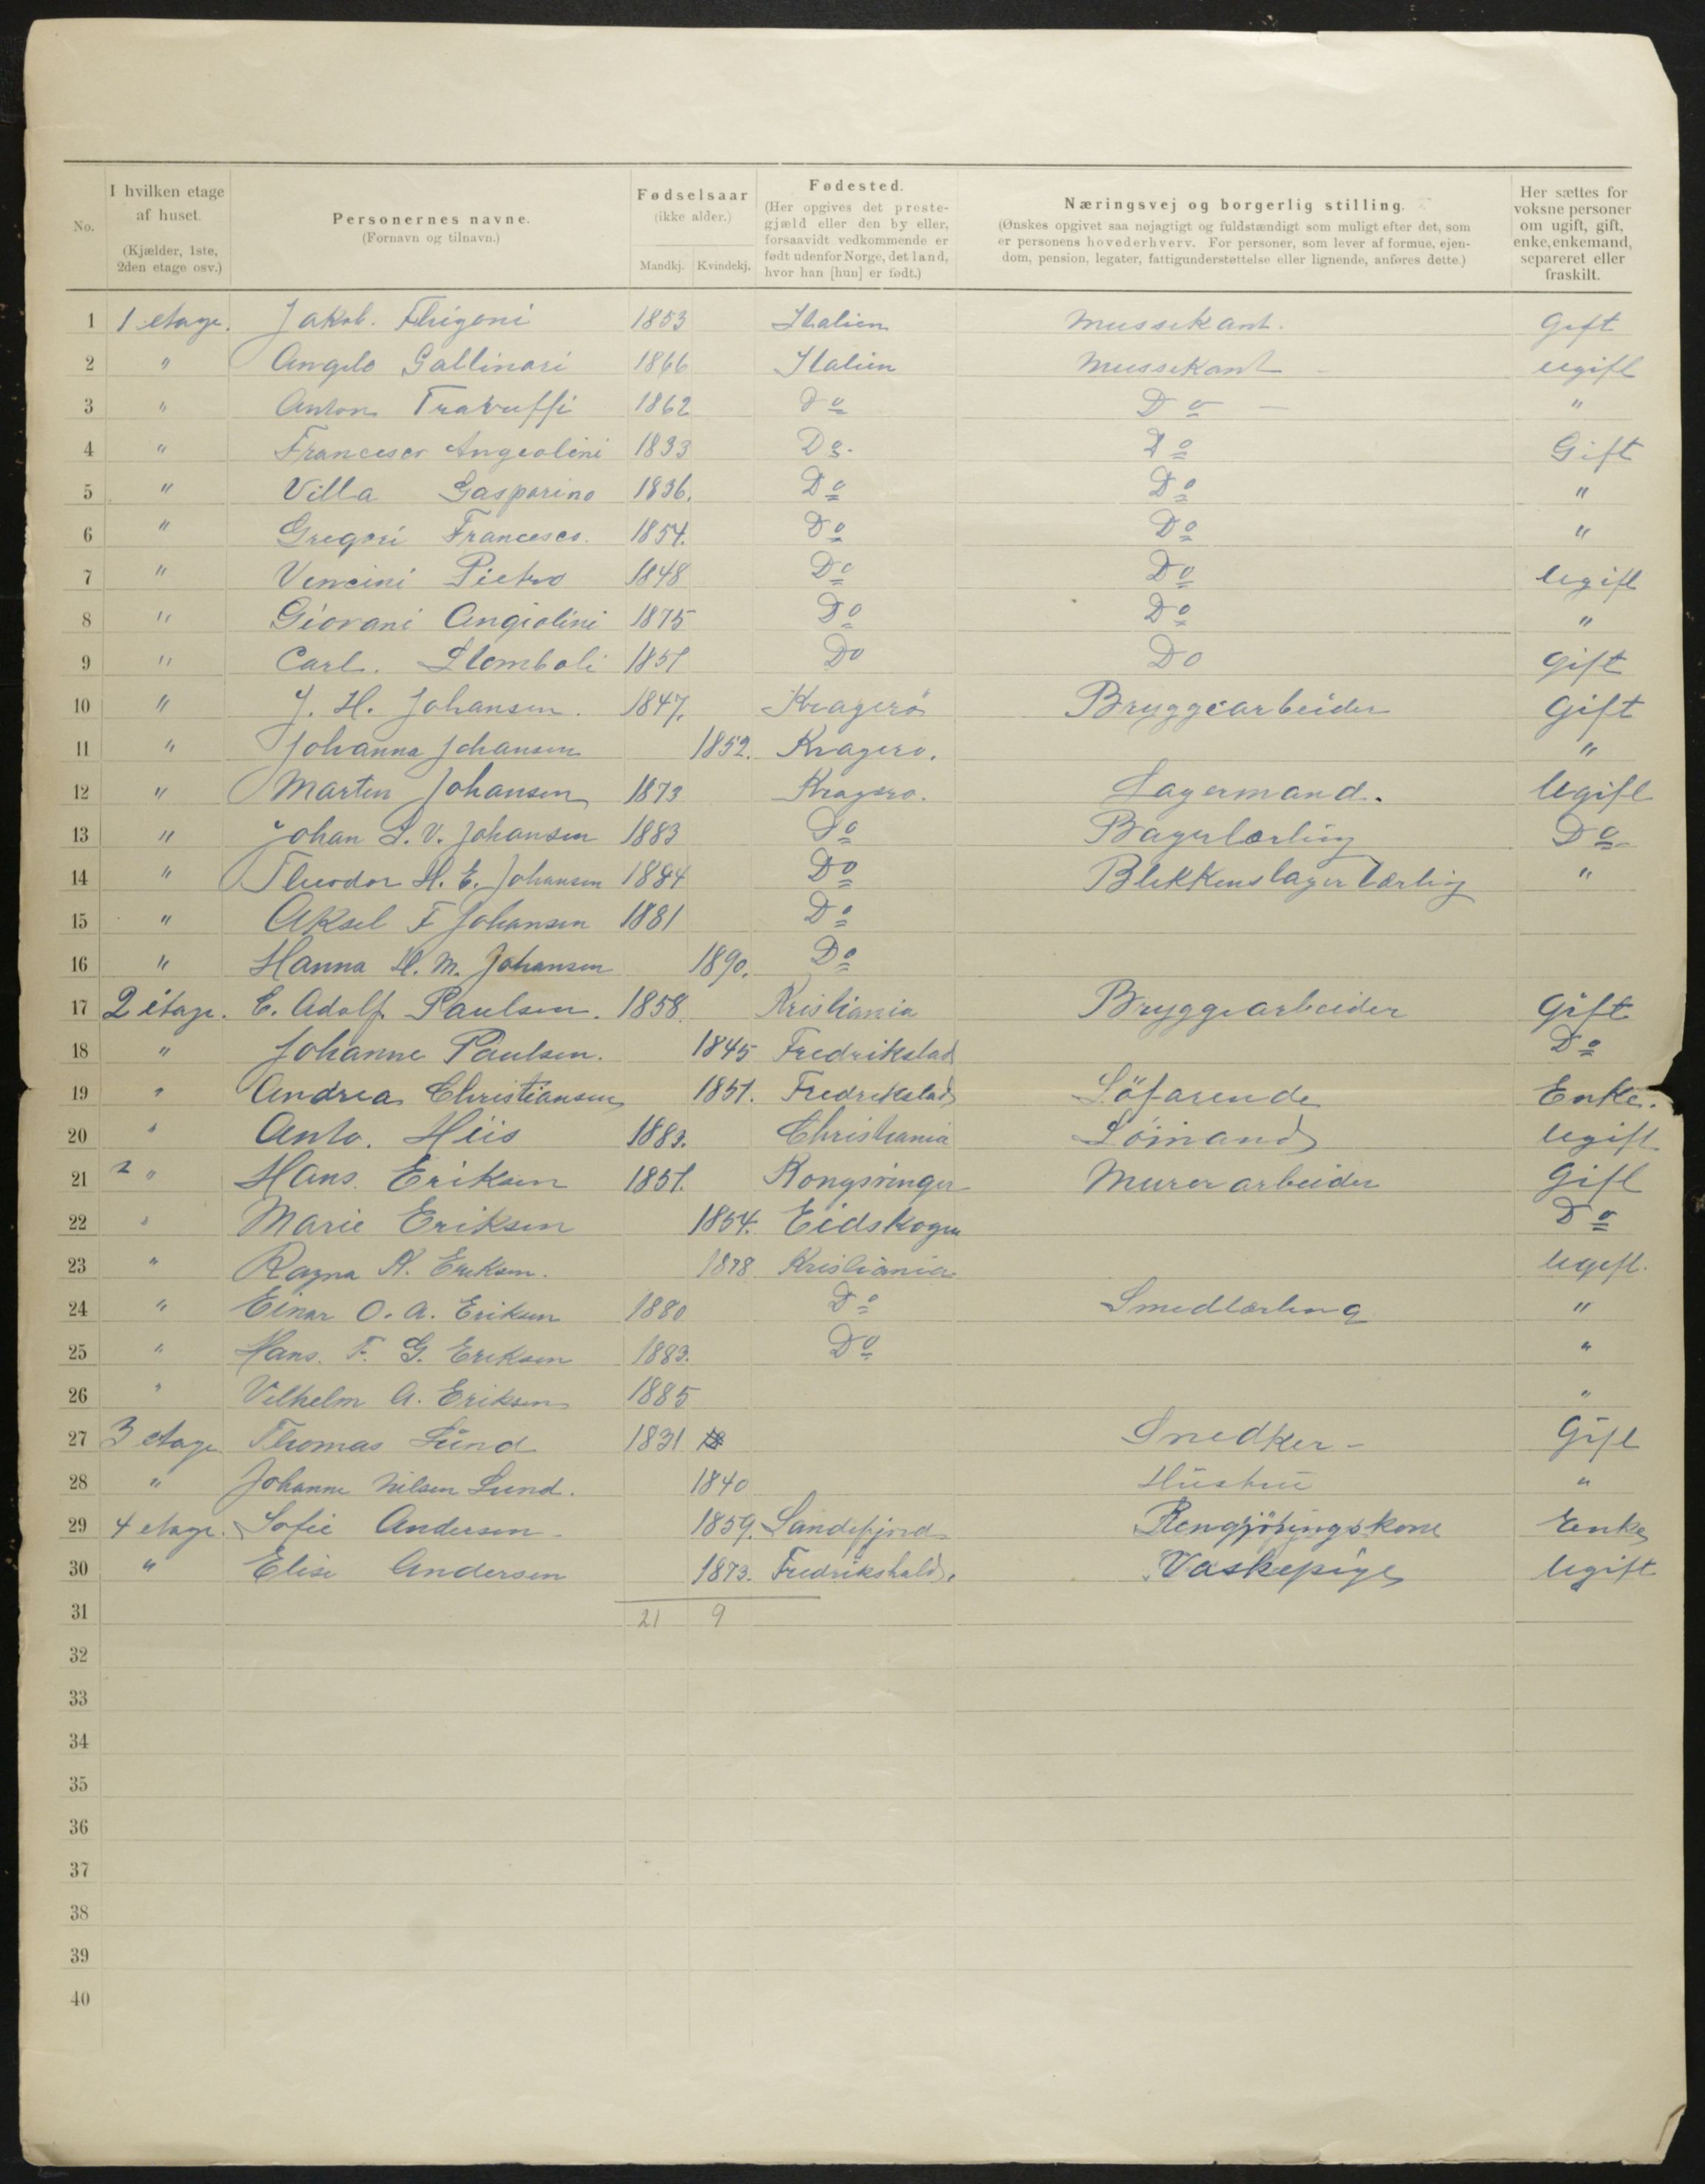 No. | I hvilken etage af huset. (Kjælder, 1ste, 2den etage osv.) | Personernes navne. (Fornavn og tilnavn.) | Fødselsaar (ikke alder.) Mandkj. Kvindekj. | Fødested. (Her opgives det prestegjæld eller den by eller, forsaavidt vedkommende er født udenfor Norge, det land, hvor han [hun] er født.) | Næringsvej og borgerlig stilling. (Ønskes opgivet saa nøjagtigt og fuldstændigt som muligt efter det, som er personens hovederhverv. For personer, som lever af formue, ejendom, pension, legater, fattigunderstøttelse eller lignende, anføres dette.) | Her sættes for voksne personer om ugift, gift, enke, enkemand, separeret eller fraskilt.
1 1 etage. Jakob. Frigoni 1853 Italien Mussikant. Gift
2 " Angelo Gallinari 1866 Italien Mussikant – ugift
3 " Anton Travuffi 1862 Do Do – "
4 " Francesco Angeolini 1833 Do. Do Gift
5 " Villa Gasparino 1836. Do Do "
6 " Gregori Francesco. 1854. Do Do "
7 " Vencini Pietro 1848 Do Do Ugift
8 " Giovani Angiolini 1875 Do Do "
9 " Carl. Stomboli 1851 Do Do gift
10 " J. H. Johansen. 1847. Kragerö Bryggearbeider Gift
11 " Johanna Johansen 1852. Kragero. "
12 " Marten Johansen 1873 Kragero. Lagermand. Ugift
13 " Johan L. V. Johansen 1883 Do Bagerlærling Do
14 " Theodor H. E. Johansen 1884 Do Blekkenslager lærling "
15 " Aksel F Johansen 1881 Do
16 " Hanna H. M. Johansen 1890. Do
17 2 etage. E. Adolf. Paulsen. 1858. Kristiania Bryggearbeider Gift
18 " Johanne Paulsen. 1845 Fredrikstad Do
19 " Andrea Christiansen 1851. Fredrikstad Söfarende Enke.
20 " Anto. Hiis 1883. Christiania Sömand Ugift
21 2 " Hans. Eriksen 1851. Kongsvinger Murerarbeider Gift
22 " Marie Eriksen 1854. Eidskogen Do
23 " Ragna K. Eriksen. 1878 Kristiania Ugift.
24 " Einar O. A. Eriksen 1880 Do Smedlærling "
25 " Hans. F. G. Eriksen 1883. Do "
26 " Vilhelm A. Eriksen 1885 "
27 3 etage Thomas Lund 1831 Snedker – Gift
28 " Johanne Nilsen Lund. 1840 Hustru "
29 4 etage. Sofie Andersen 1859. Sandefjord Rengjöringskone Enke
30 " Elise Andersen 1873. Fredrikshald. Vaskepige Ugift
31 21 9
32
33
34
35
36
37
38
39
40